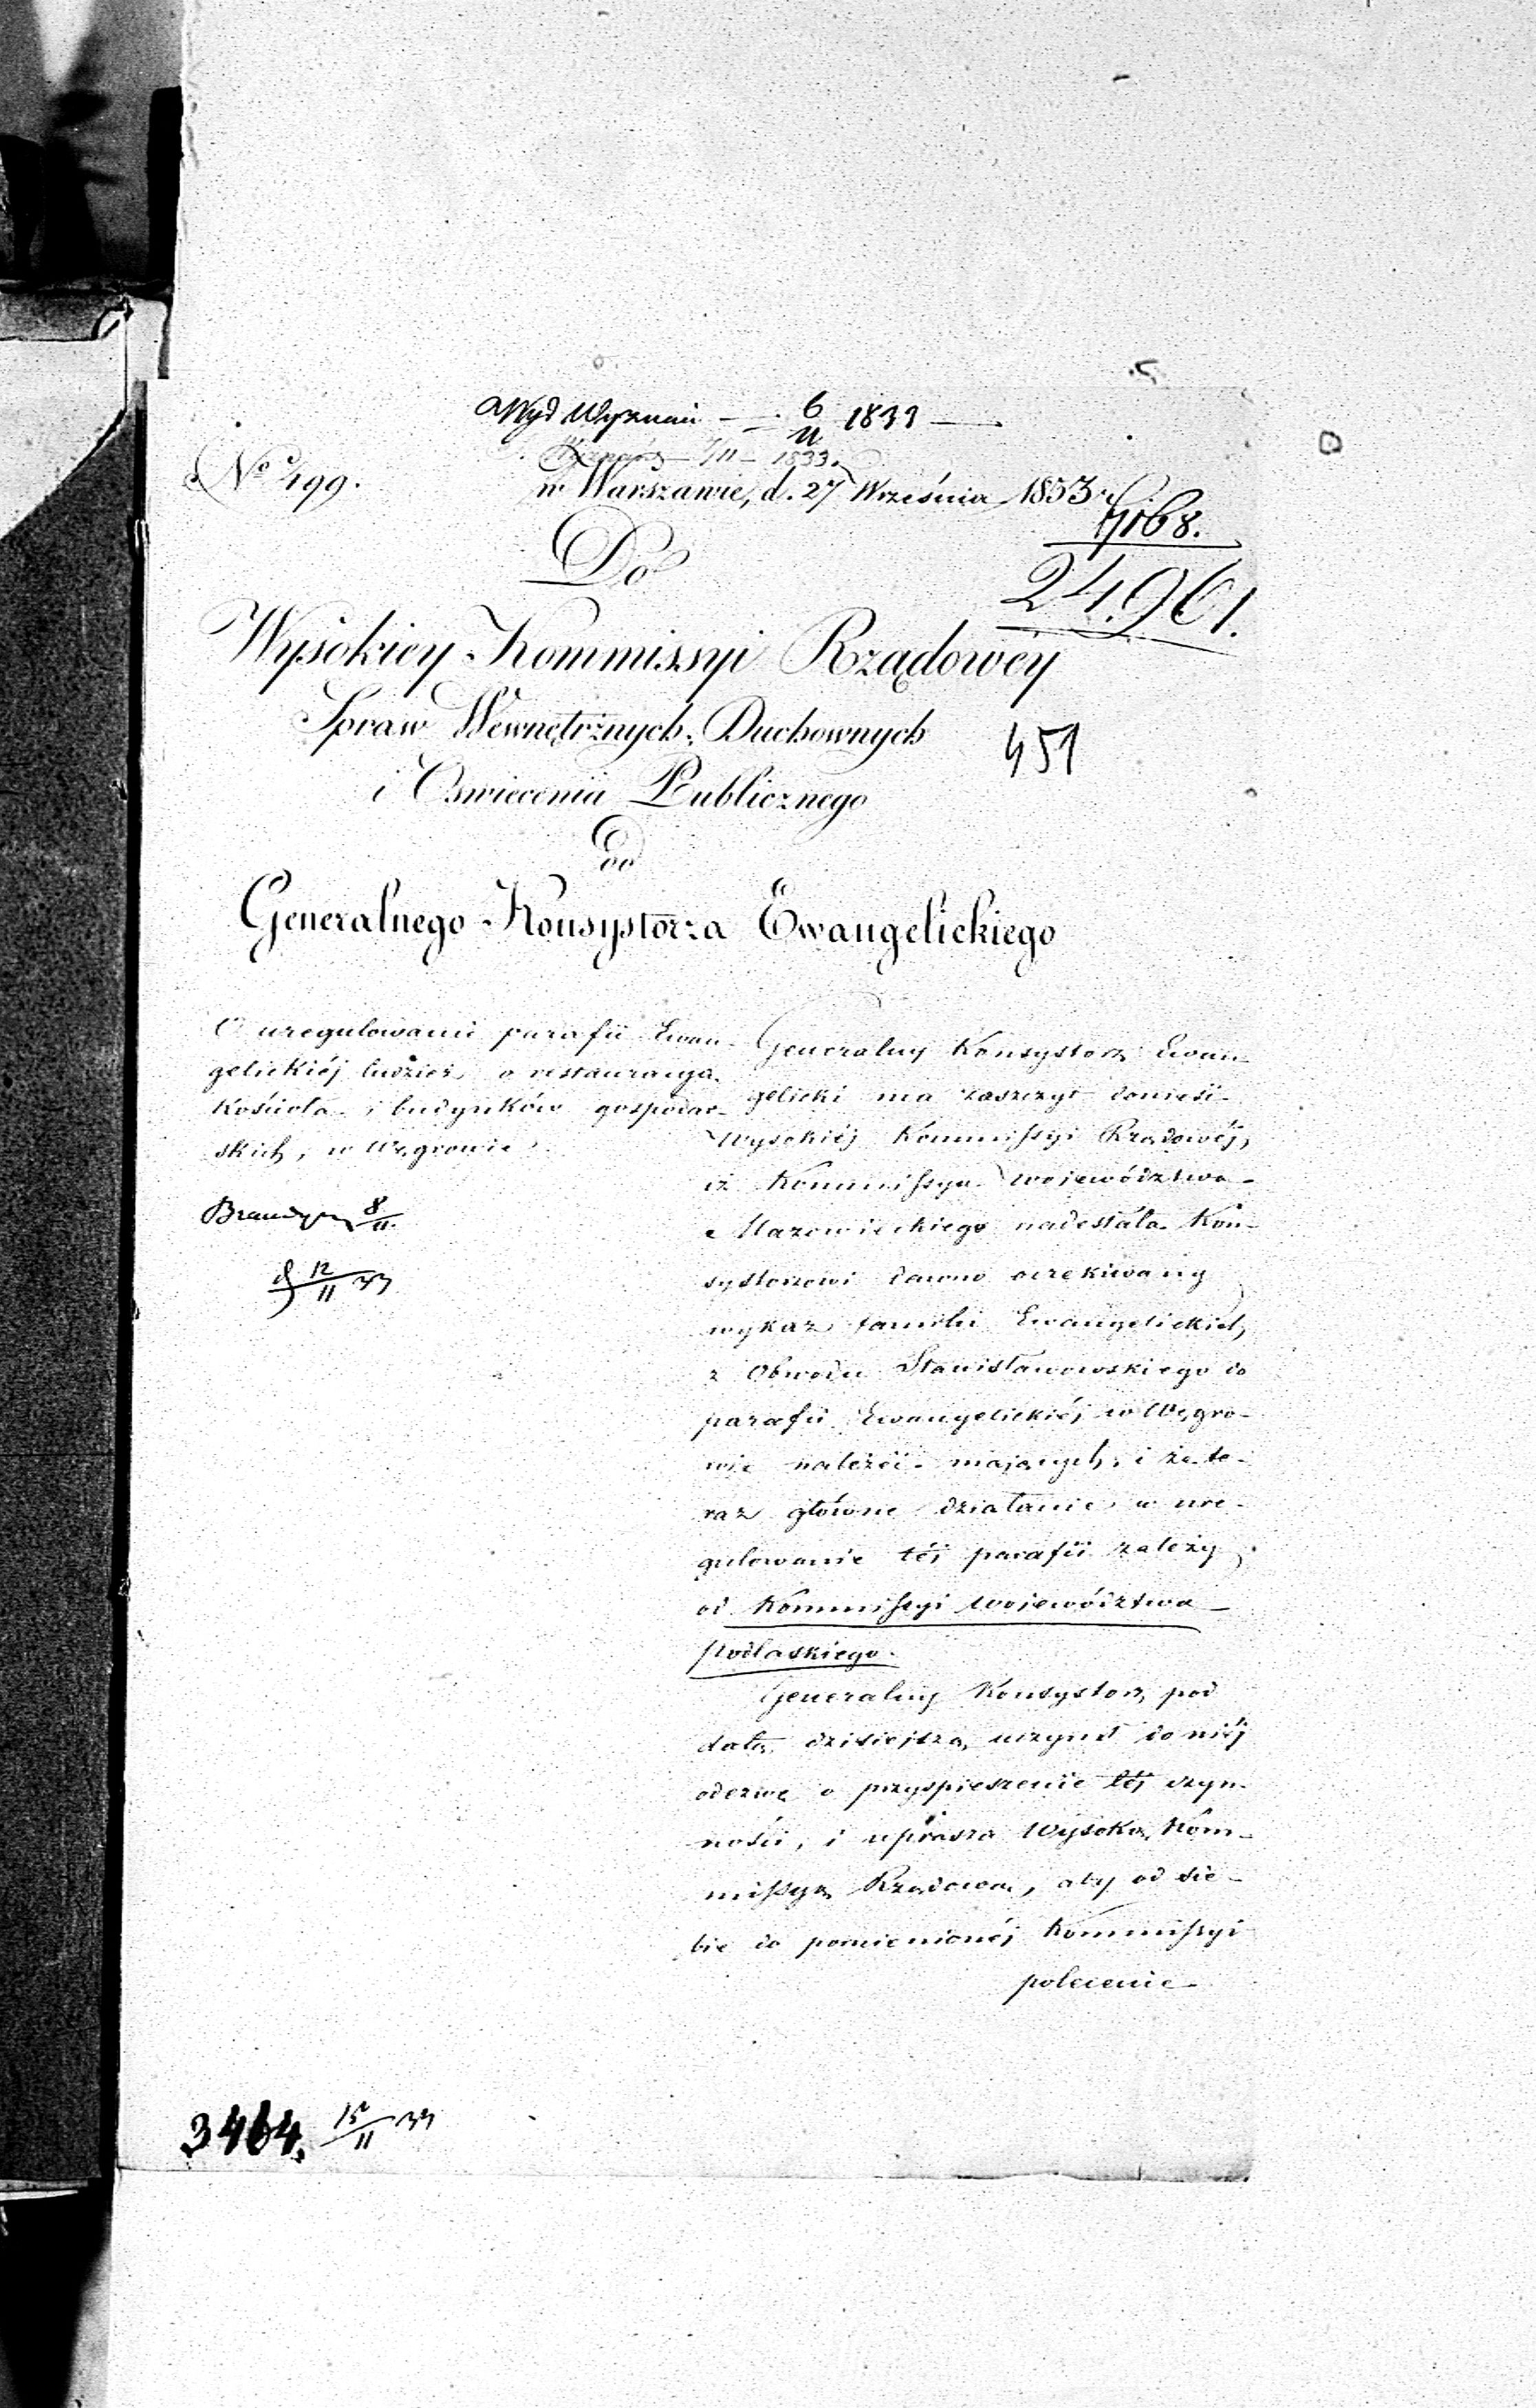 Wyd Wyznań — 6/11 1833 —
1833.
No 499.
w Warszawie, d. 27 Września 1833 r.
7168.
24961.
Do
Wysokiey Kommissyi Rządowey
Spraw Wewnętrznych, Duchownych
i Oswiecenia Publicznego
451
od
Generalnego Konsystorza Ewangelickiego
O uregulowanie parafii Ewan-
gelickiéj tudzież o restauracyą
Kościoła i budynków gospodar-
skich, w Węgrowie.
8/11
12/11 33
Generalny Konsystorz Ewan-
gelicki ma zaszczyt donieść
Wysokiéj Kommissyi Rządowéj,
iż Kommissya Województwa
Mazowieckiego nadesłała Kon-
systorzowi dawno oczekiwany
wykaz familii Ewangelickich,
z Obwodu Stanisławowskiego do
parafii Ewangelickiéj w Węgro-
wie należeć mających, i że te-
raz główne działanie w ure-
gulowanie téj parafii zależy
od Kommissyi Województwa
Podlaskiego.
Generalny Konsystorz, pod
datą dzisiejszą, uczynił do niéj
odezwę o przyspieszenie téj czyn-
ności, i uprasza Wysoką Kom-
missyą Rządową, aby od sie-
bie do pomienionéj Kommissyi
polecenie
3464. 15/11 33